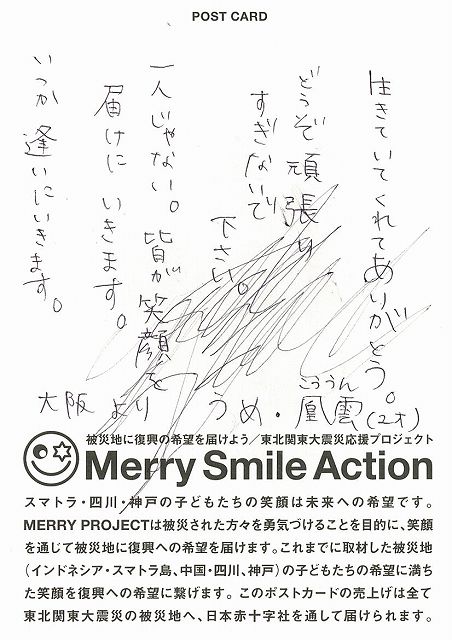 POST CARD
生きていてくれてありがとう。
どうぞ頑張り
すぎないで
下さい。
一人じゃない。皆が笑顔を
届けにいきます。
いつか逢いにいきます。
大阪より
うめ・凰雲(2才)
こううん
被災地に復興の希望を届けよう／東北関東大震災応援プロジェクト
Merry Smile Action
スマトラ・四川・神戸の子どもたちの笑顔は未来への希望です。
MERRY PROJECTは被災された方々を勇気づけることを目的に、笑顔
を通じて被災地に復興への希望を届けます。これまでに取材した被災地
（インドネシア・スマトラ島、中国・四川、神戸）の子どもたちの希望に満ち
た笑顔を復興への希望に繋げます。このポストカードの売上げは全て
東北関東大震災の被災地へ、日本赤十字社を通して届けられます。